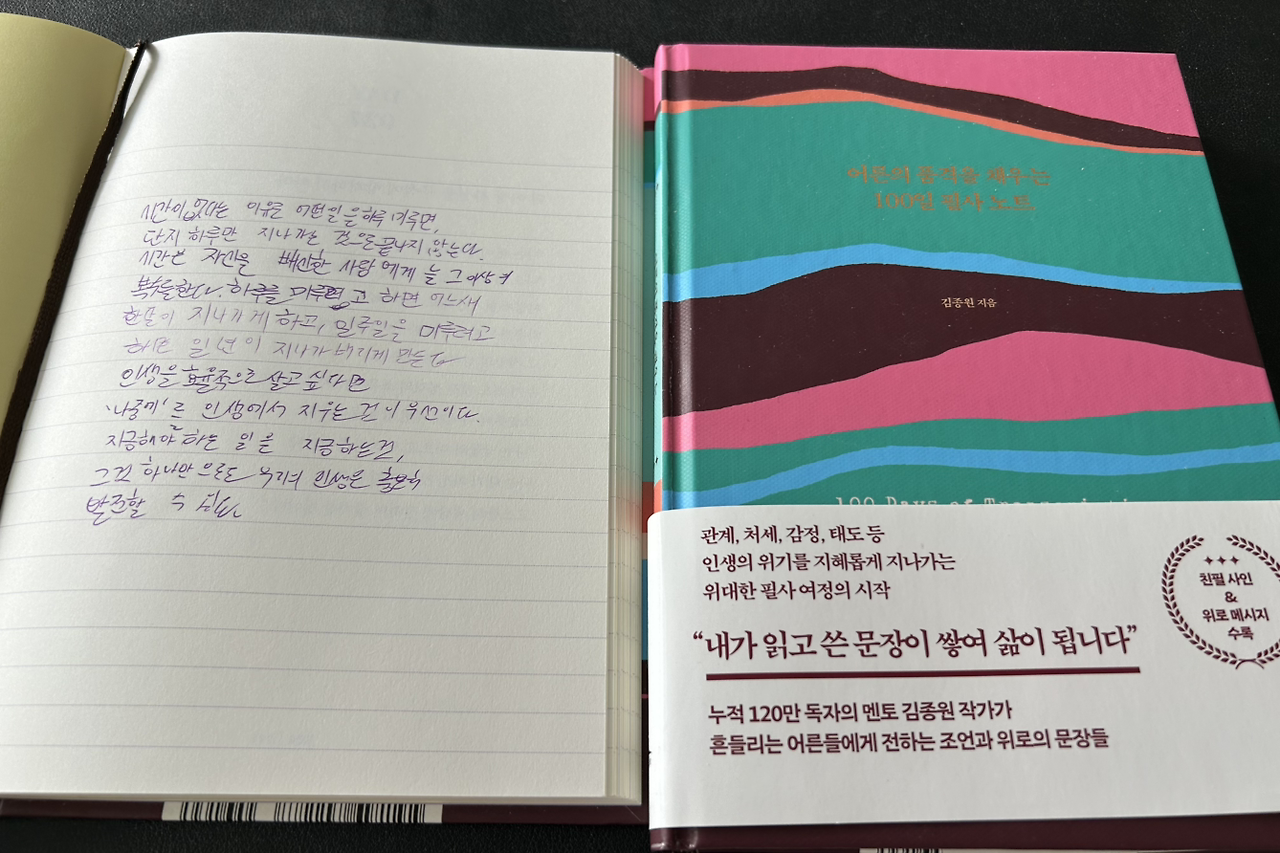 시간이 없다는 이유로 어떤 일을 하루 미루면,
단지 하루만 지나가는 것으로 끝나지 않는다.
시간은 자신을 배신한 사람에게 늘 그 이상의
복수를 한다. 하루를 미루려고 하면 어느새
한달이 지나가게 하고, 일주일을 미루려고
하면 일년이 지나가 버리게 만든다
인생을 효율적으로 살고 싶다면
'나중에'를 인생에서 지우는 것이 우선이다.
지금 해야 하는 일을 지금하는 것,
그것 하나만으로도 우리의 인생은 충분히
발전할 수 있다.
어른의 품격을 채우는
100일 필사 노트
김종원 지음
100 Days of
관계, 처세, 감정, 태도 등
인생의 위기를 지혜롭게 지나가는
위대한 필사 여정의 시작
“내가 읽고 쓴 문장이 쌓여 삶이 됩니다”
누적 120만 독자의 멘토 김종원 작가가
흔들리는 어른들에게 전하는 조언과 위로의 문장들
친필 사인
&
위로 메시지
수록